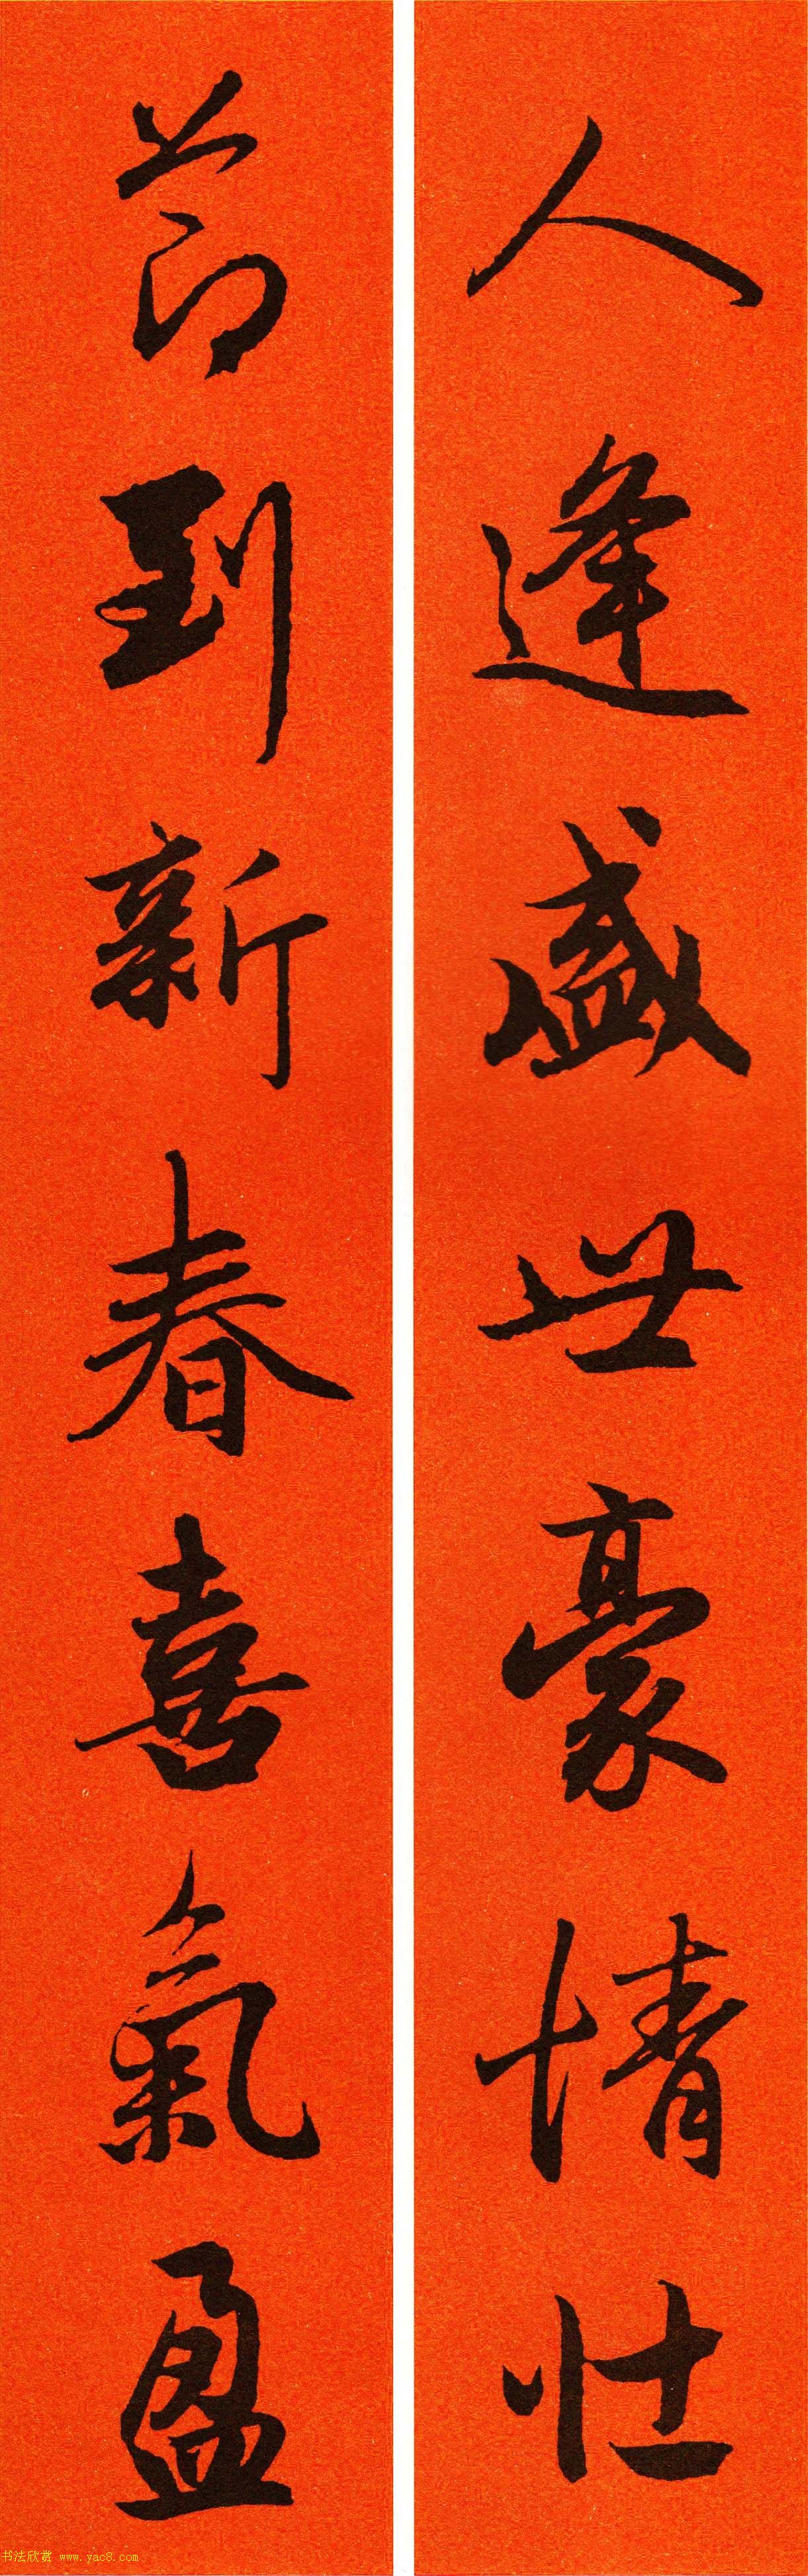 人逢盛世豪情壮
节到新春喜氣盈
书法欣赏 www.yac8.com